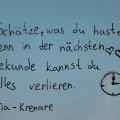 Schätze, was du hast
denn in der nächsten
Sekunde kannst du
alles verlieren.
-Krenare